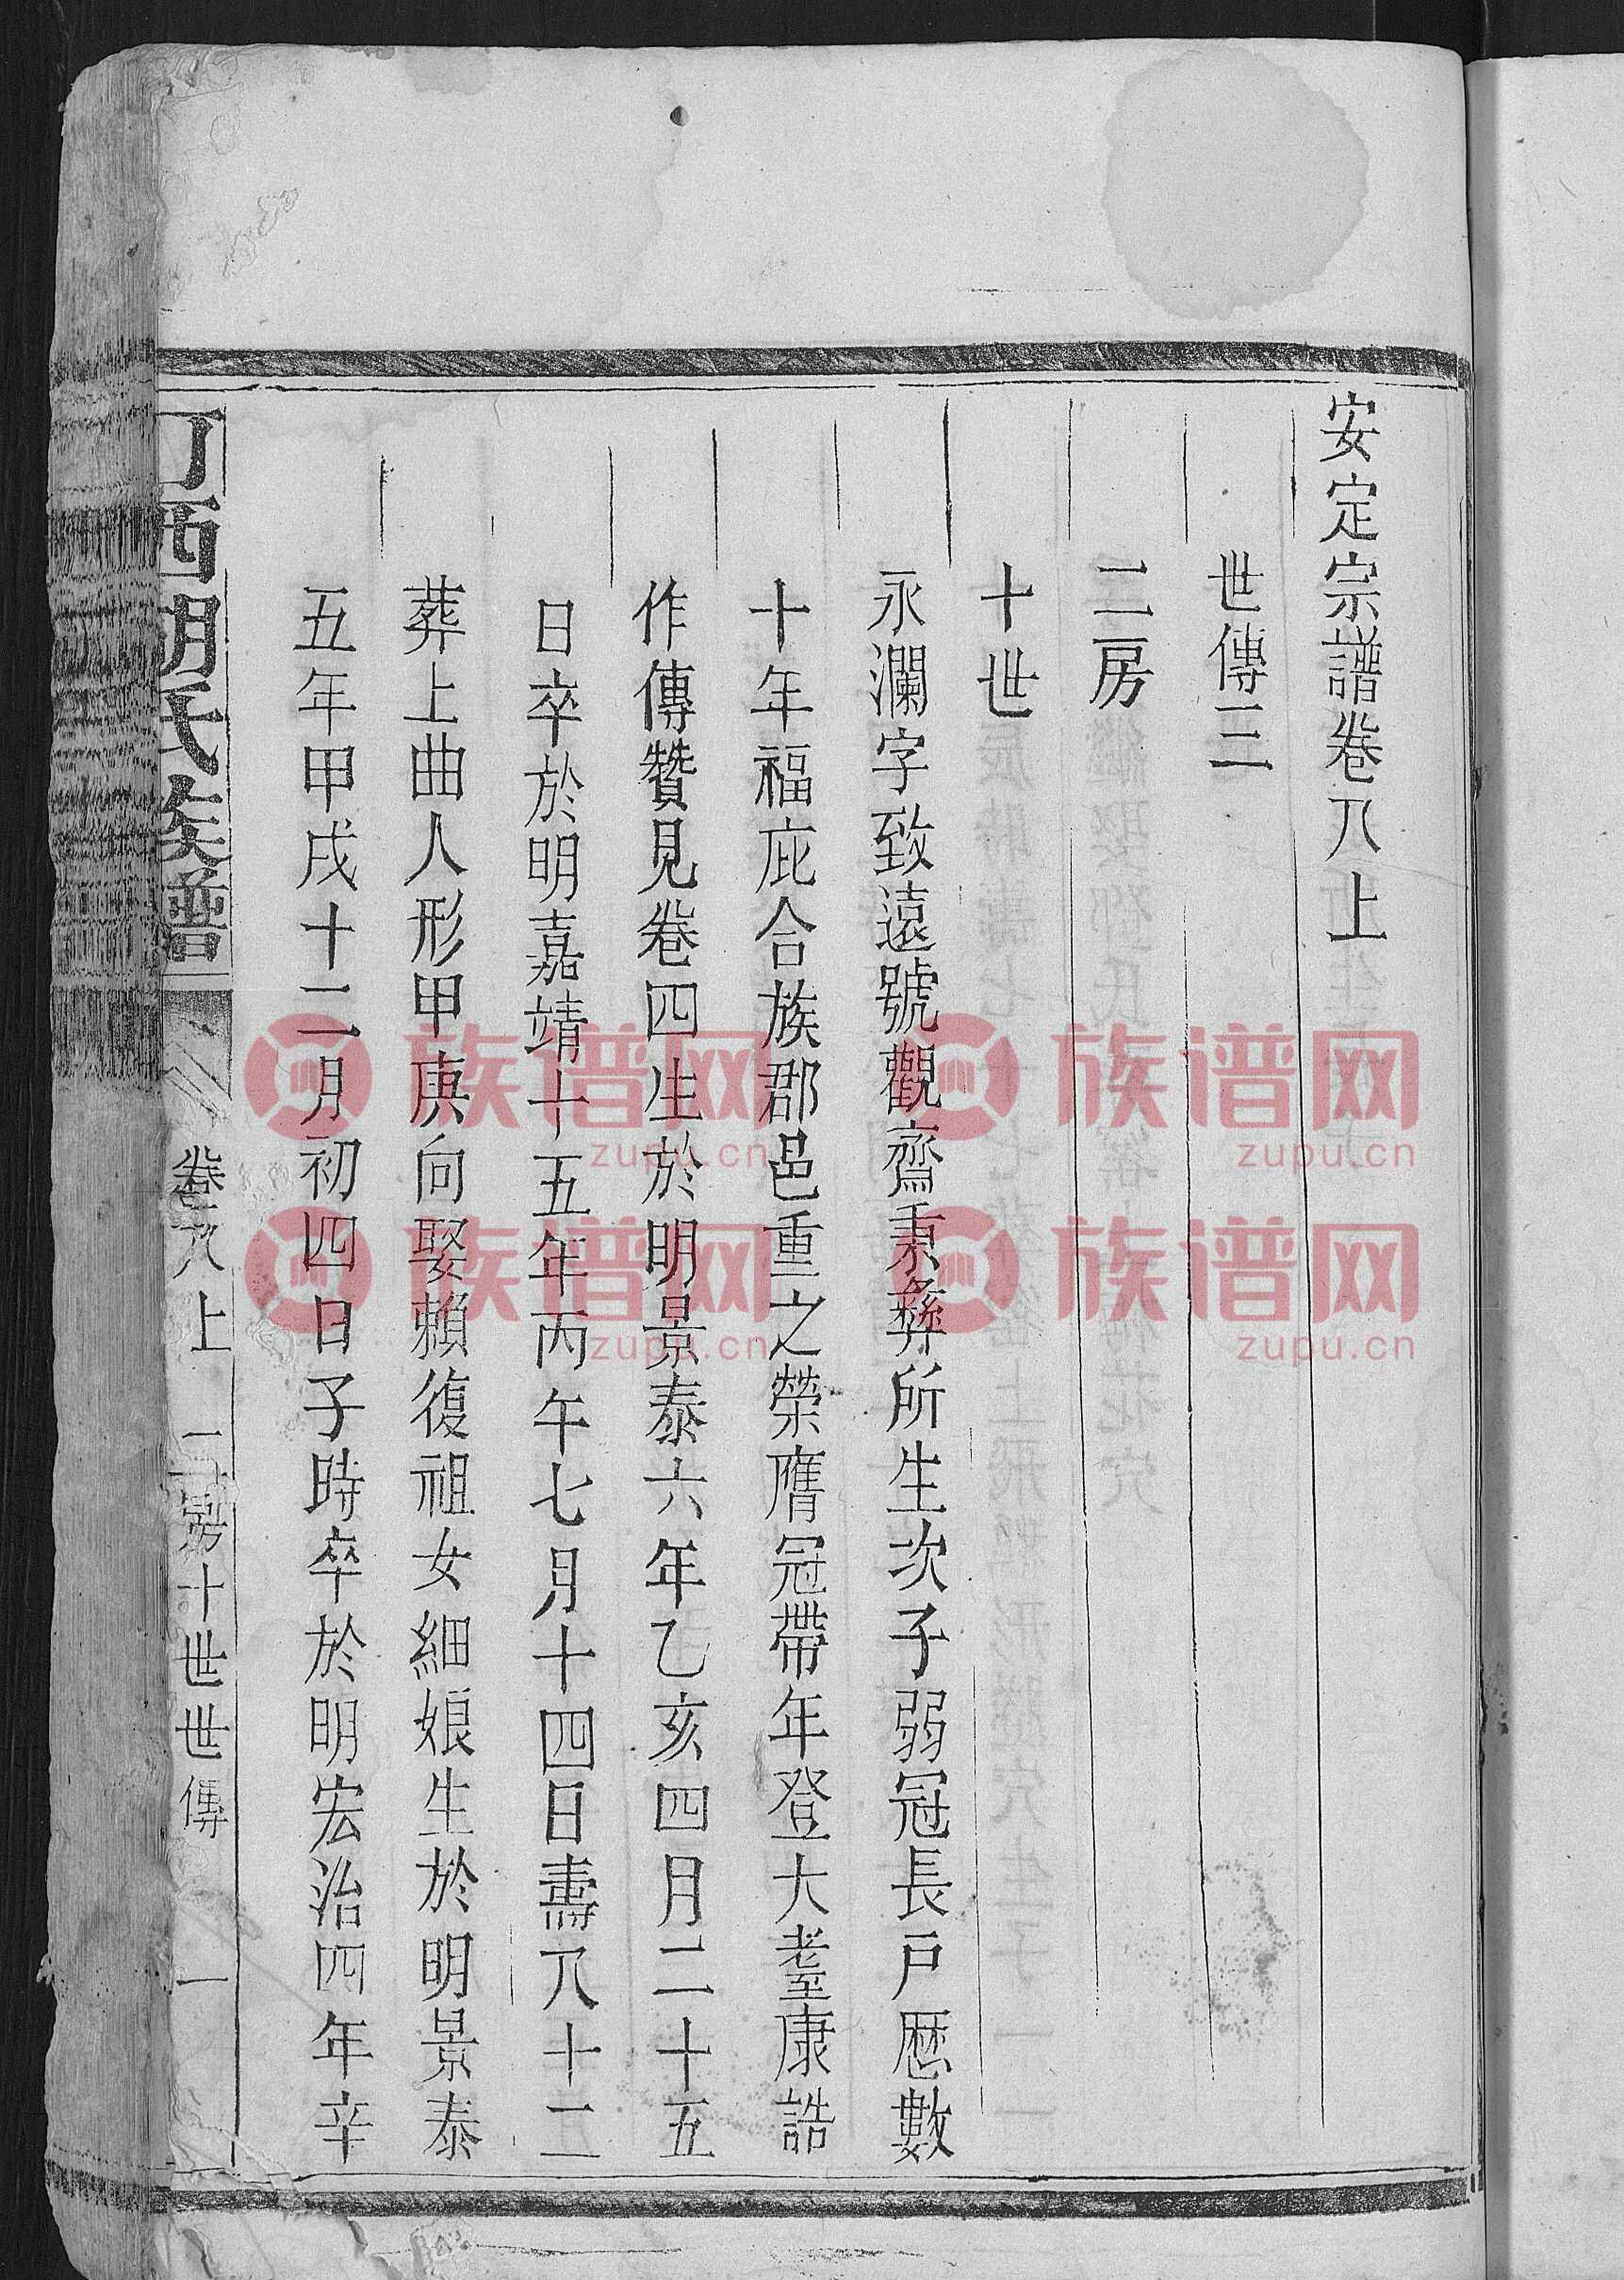 安定宗譜卷八上
世傳三
二房
十世
永瀾字致遠號觀齋秉彝所生次子弱冠長戶歷數
十年福庇合族郡邑重之榮膺冠帶年登大耋康誥
作傳贊見卷四生於明景泰六年乙亥四月二十五
日卒於明嘉靖十五年丙午七月十四日壽八十二
葬上曲人形甲庚向娶賴復祖女細娘生於明景泰
五年甲戌十二月初四日子時卒於明宏治四年辛
西胡氏族譜
卷八上
二房十世世傳
一
族谱网
zupu.cn
族谱网
zupu.cn
族谱网
zupu.cn
族谱网
zupu.cn